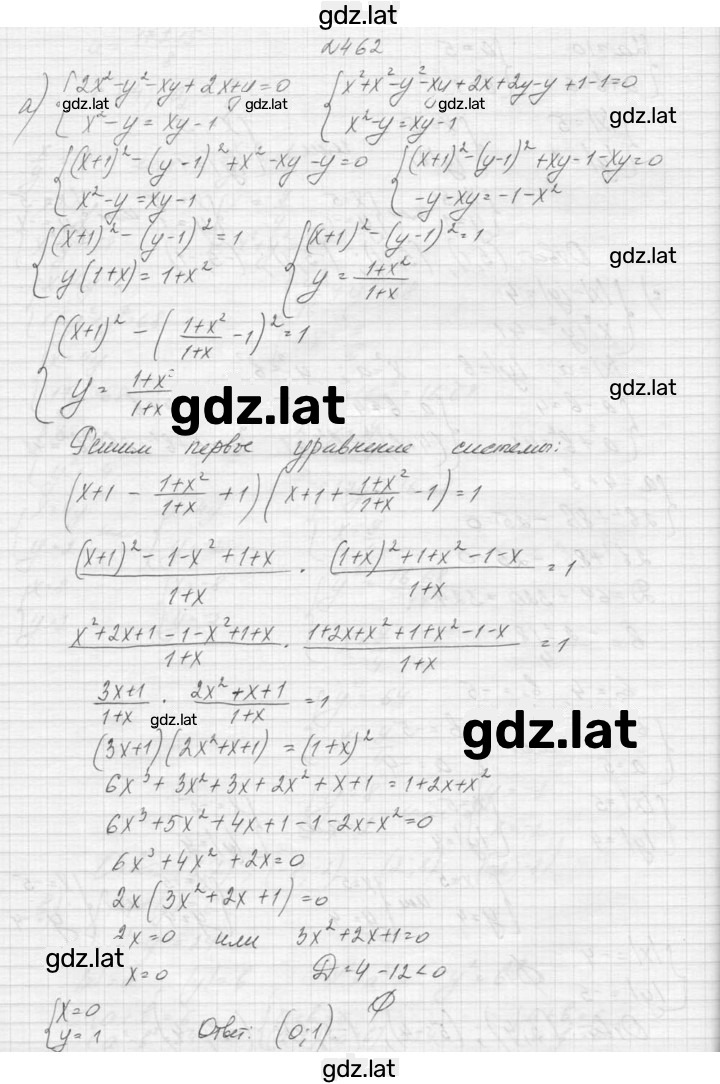 gdz.lat
№462
а) {2x²-y²-xy+2x+y=0 {x²+x²-y²-xy+2x+2y-y+1-1=0
gdz.lat gdz.lat gdz.lat gdz.lat
x²-y=xy-1 x²-y=xy-1
{(x+1)²-(y-1)²+x²-xy-y=0 {(x+1)²-(y-1)²+xy-1-xy=0
x²-y=xy-1 -y-xy=-1-x²
{(x+1)²-(y-1)²=1 {(x+1)²-(y-1)²=1
gdz.lat
y(1+x)=1+x² y=(1+x²)/(1+x)
{(x+1)²-((1+x²)/(1+x)-1)²=1
y=(1+x²)/(1+x)
gdz.lat
gdz.lat
Решим первое уравнение системы:
(x+1-(1+x²)/(1+x)+1)(x+1+(1+x²)/(1+x)-1)=1
((x+1)²-1-x²+1+x)/(1+x)·((1+x)²+1+x²-1-x)/(1+x)=1
(x²+2x+1-1-x²+1+x)/(1+x)·(1+2x+x²+1+x²-1-x)/(1+x)=1
(3x+1)/(1+x)·(2x²+x+1)/(1+x)=1
gdz.lat
gdz.lat
(3x+1)(2x²+x+1)=(1+x)²
6x³+3x²+3x+2x²+x+1=1+2x+x²
6x³+5x²+4x+1-1-2x-x²=0
6x³+4x²+2x=0
2x(3x²+2x+1)=0
2x=0 или 3x²+2x+1=0
gdz.lat
x=0 D=4-12<0
∅
{x=0
y=1 Ответ: (0;1)
gdz.lat